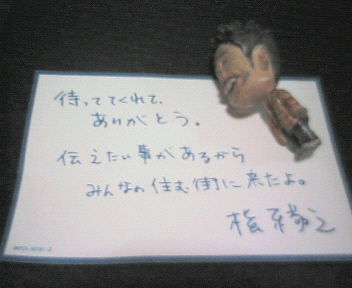 待っててくれて、
ありがとう。
伝えたい事があるから
みんなの住む街に来たよ。